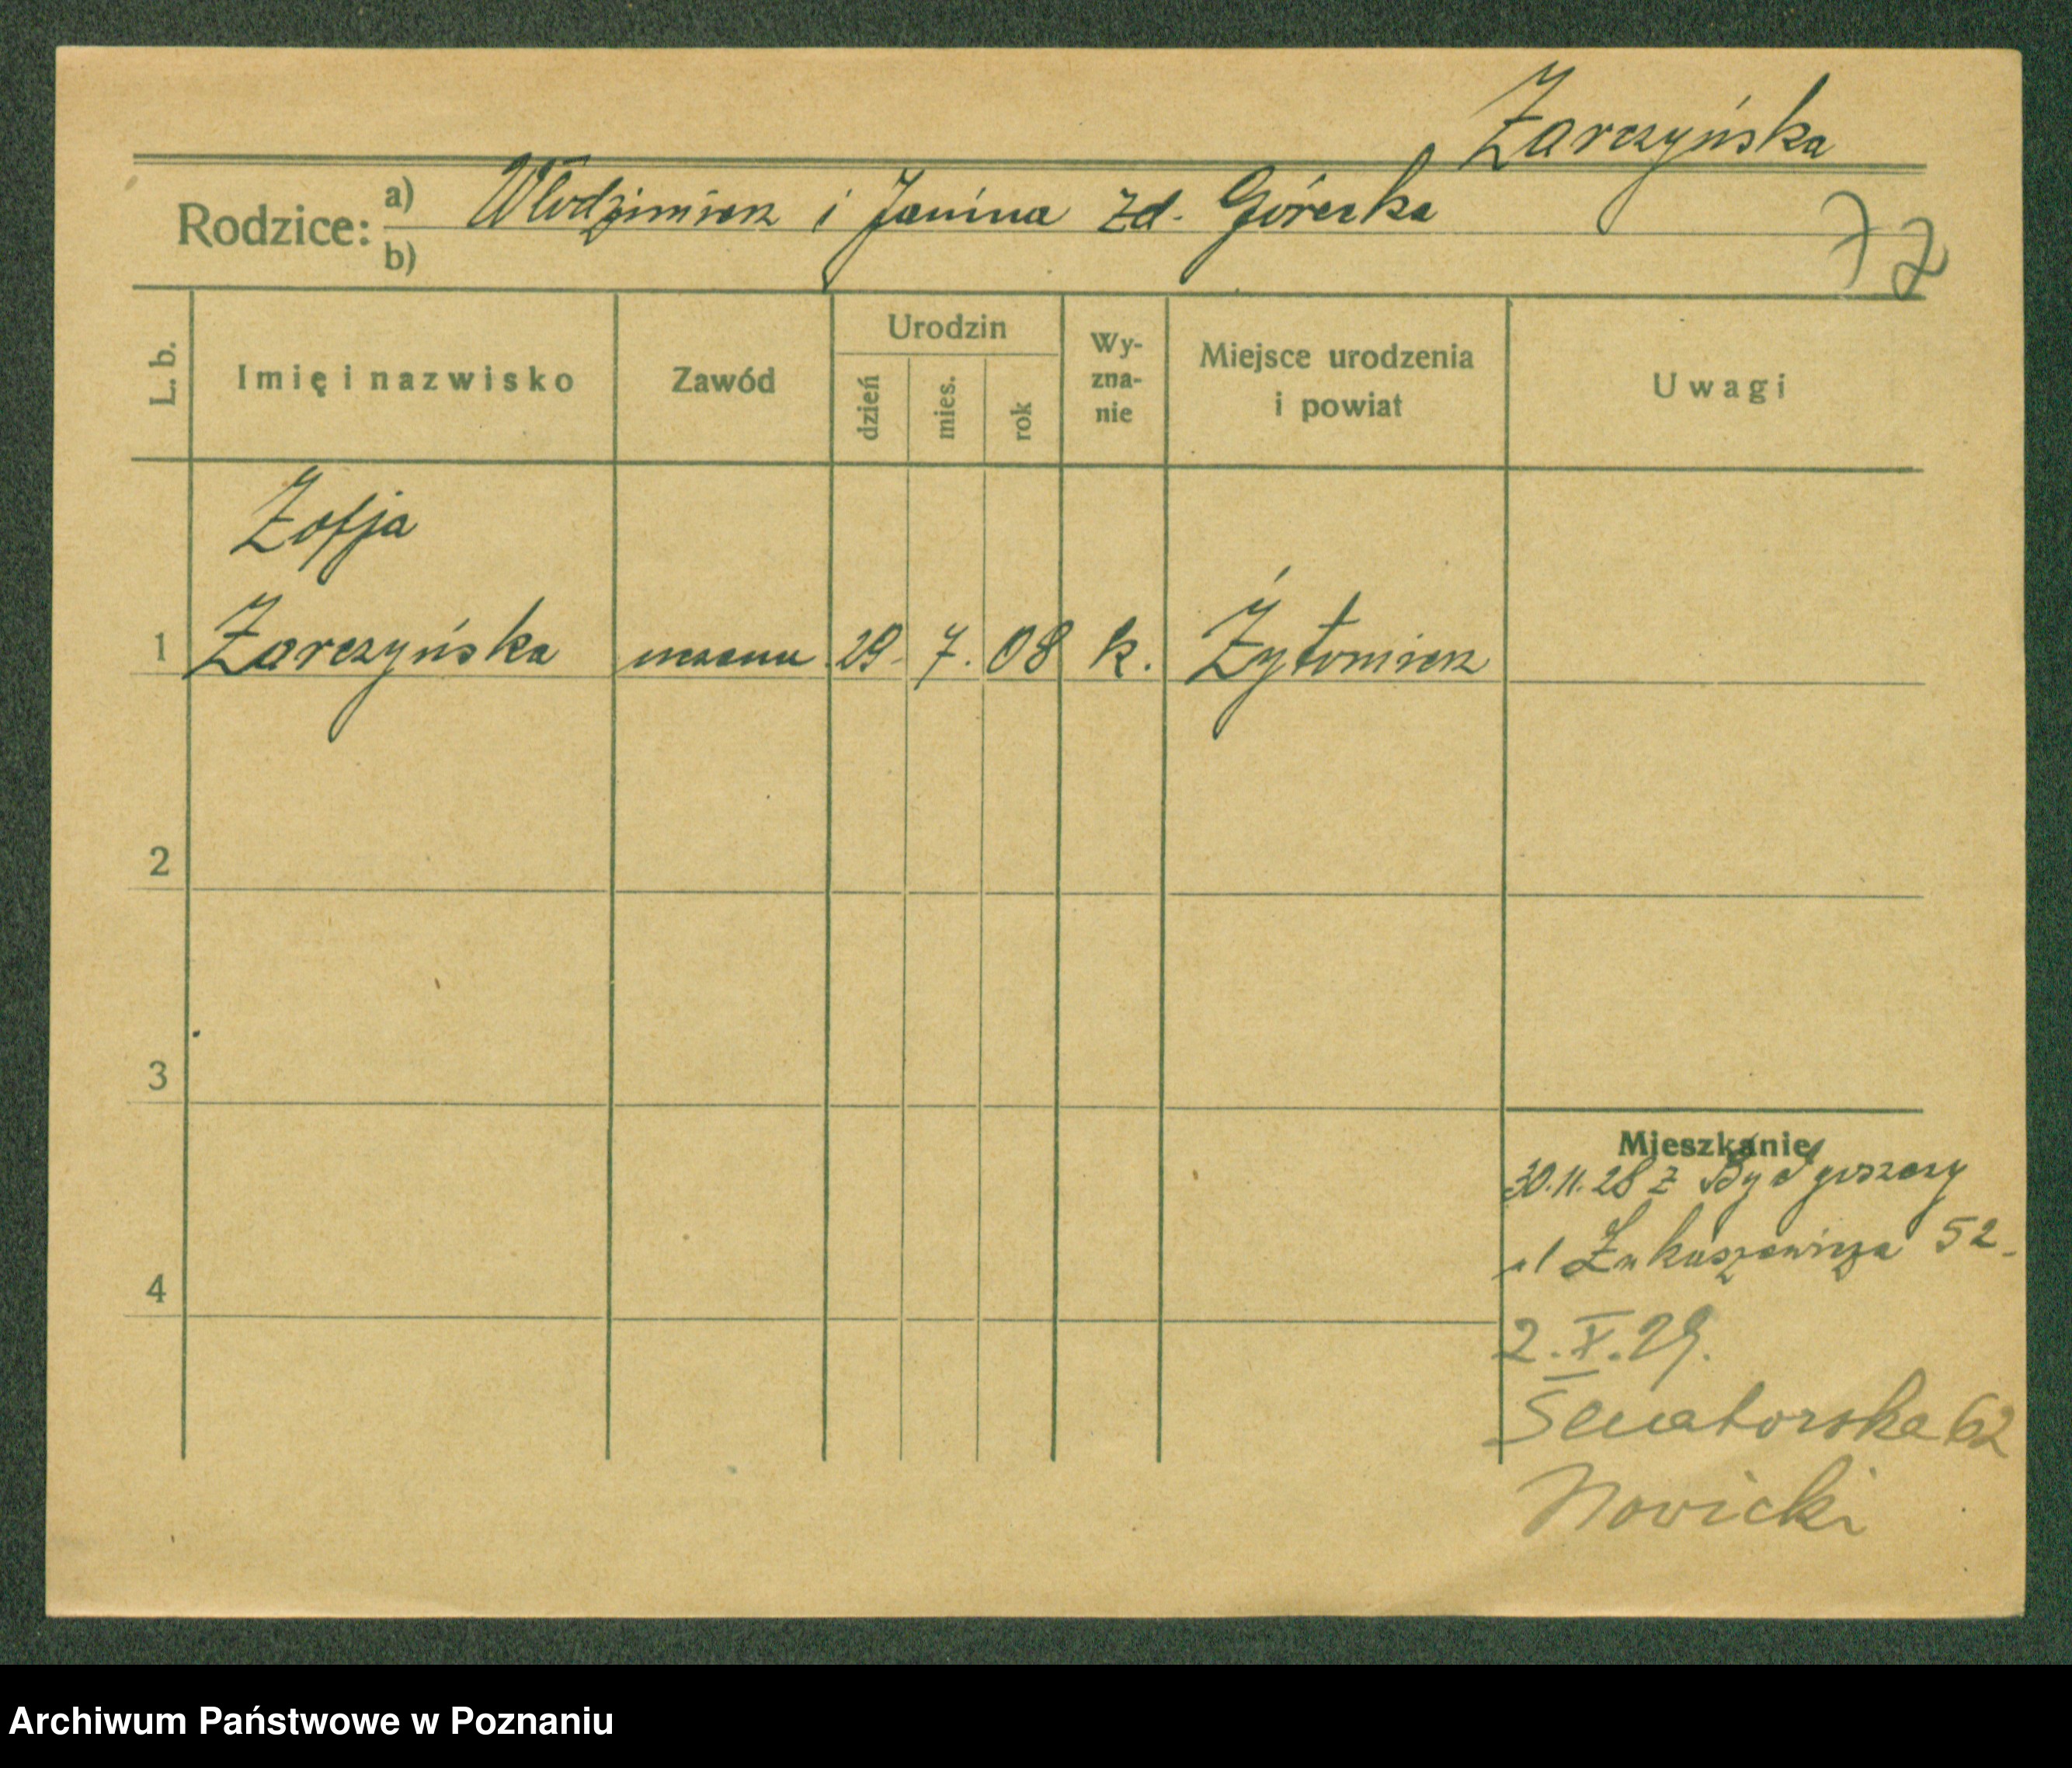 Zarczyńska
Rodzice: a) Włodzimierz i Janina zd. Górecka
b)
77
L. b. Imię i nazwisko Zawód Urodzin dzień mies. rok Wy-zna-nie Miejsce urodzenia i powiat Uwagi
Zofja
1 Zarczyńska uczenn 29. 7. 08 k. Żytomierz
2
3
Mieszkanie
30.11.28 z Bydgoszczy
ul Łukaszewicza 52
4
2.X.29.
Senatorska 62
Nowicki
Archiwum Państwowe w Poznaniu